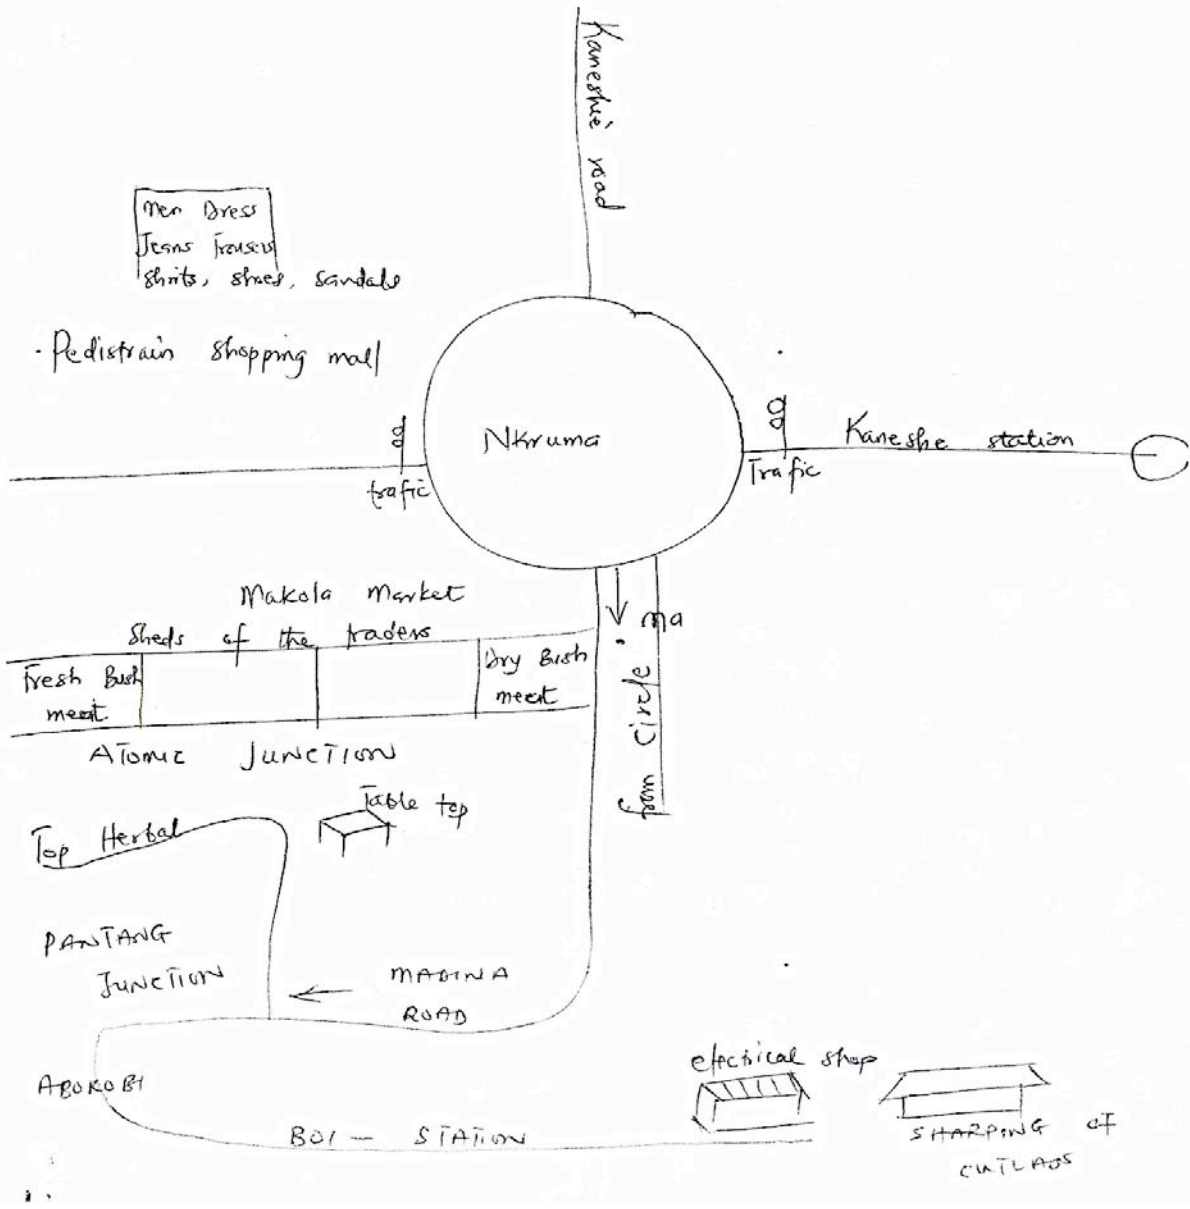 Kaneshie road
Men Dress
Jeans Trousers
Shrits, shoes, sandals
Pedistrain shopping mall
Nkruma
Kaneshe station
trafic
Trafic
Makola Market
Sheds of the traders
Fresh Bush
meat
Dry Bush
meat
from Circle
ma
ATomic JUNCTION
Table top
Top Herbal
PANTANG
JUNCTION
MADINA
ROAD
ABOKOBI
BOI - STATION
electrical shop
SHARPING of
CUTLASS